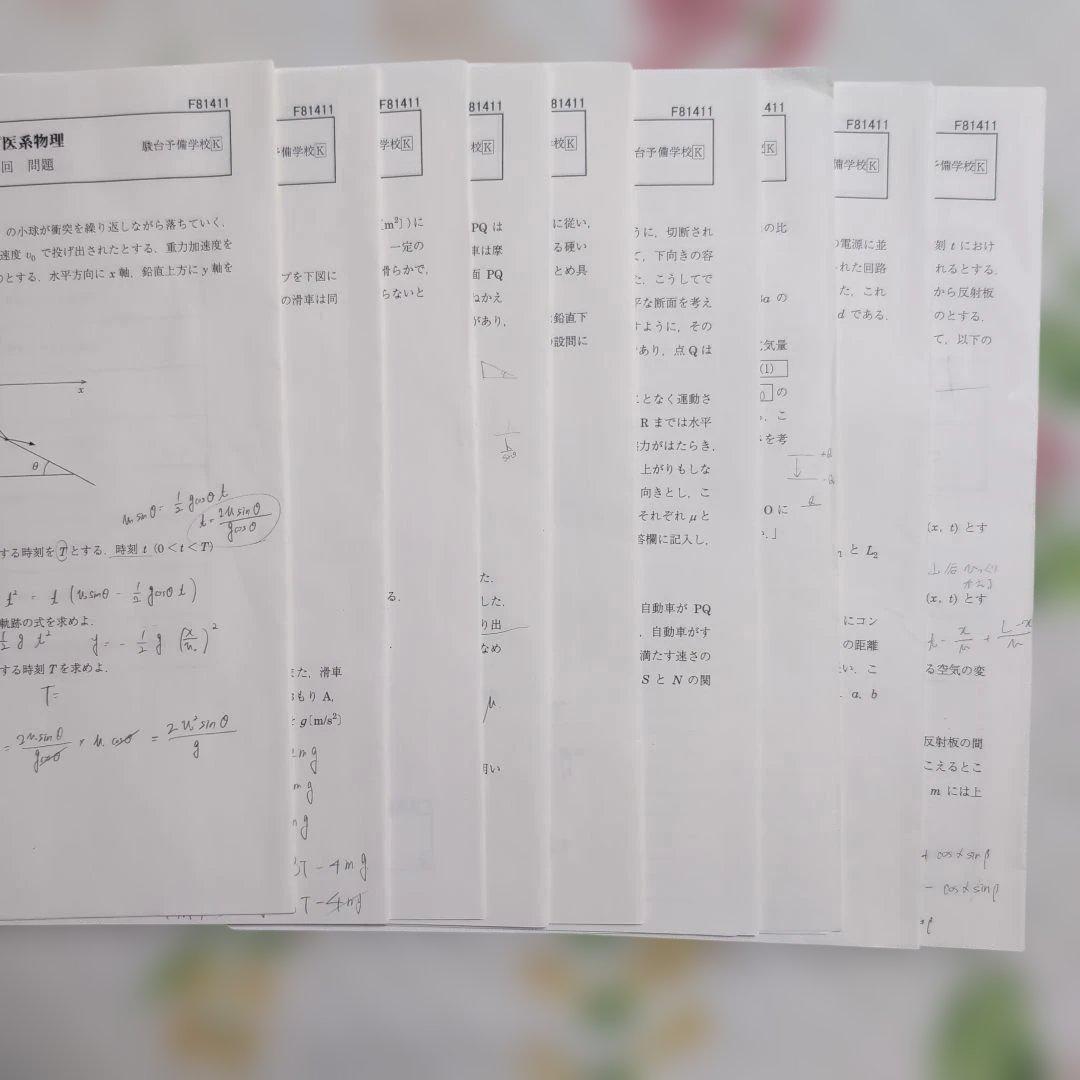 F81411
医系物理
駿台予備学校K
回 問題
の小球が衝突を繰り返しながら落ちていく.
速度 v₀ で投げ出されたとする. 重力加速度を
のとする. 水平方向に x 軸, 鉛直上方に y 軸を
x
θ
t = 2u sinθ / g cosθ
する時刻を T とする. 時刻 t (0 < t < T)
軌跡の式を求めよ.
する時刻 T を求めよ.
T =
F81411
備学校K
プを下図に
の滑車は同
また, 滑車
おもり A,
g [m/s²]
mg
T - 4mg
F81411
学校K
[m²])に
一定の
滑らかで,
らないと
る.
81411
校K
PQ は
車は摩
面 PQ
ねかえ
があり,
た.
した.
り出
なめ
μ.
用い
81411
校K
に従い,
る硬い
とめ具
鉛直下
設問に
F81411
台予備学校K
うに, 切断され
て, 下向きの容
た. こうしてで
平な断面を考え
すように, その
あり, 点 Q は
ことなく運動さ
R までは水平
力がはたらき,
上がりもしな
向きとし, こ
それぞれ μ と
答欄に記入し,
自動車が PQ
, 自動車がす
満たす速さの
S と N の関
411
K
の比
a の
気量
(1)
の
, こ
を考
O に
.」
F81411
備学校K
の電源に並
れた回路
た, これ
d である.
と L₂
にコン
の距離
い. こ
. a, b
F81411
予備学校K
刻 t におけ
れるとする.
から反射板
のとする.
て, 以下の
(x, t) とす
(x, t) とす
る空気の変
反射板の間
こえるとこ
m には上
+ cosα sinβ
- cosα sinβ